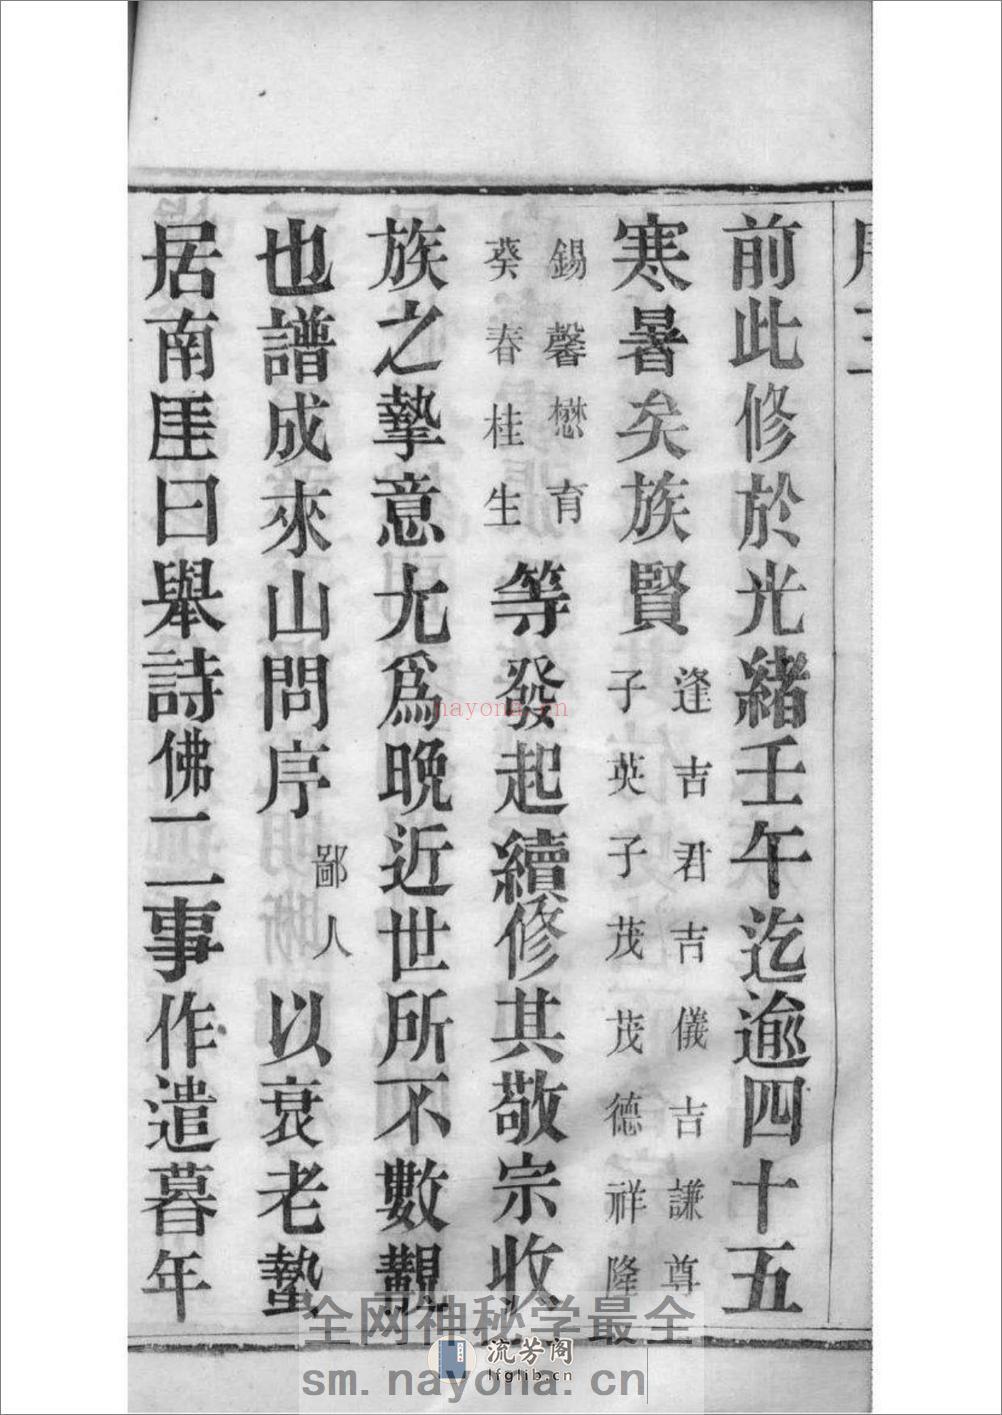 前此修於光緒壬午迄逾四十五
寒暑矣族賢
逢吉君吉儀吉謙尊
子英子茂茂德祥隆
錫馨懋育
葵春桂生
等發起續修其敬宗收
族之摯意尤爲晚近世所不數覯
也譜成來山問序鄙人以衰老蟄
居南厓曰舉詩佛二事作遣暮年
nayona.cn
全网神秘学最全
流芳阁
lfglib.cn
sm.nayona.cn